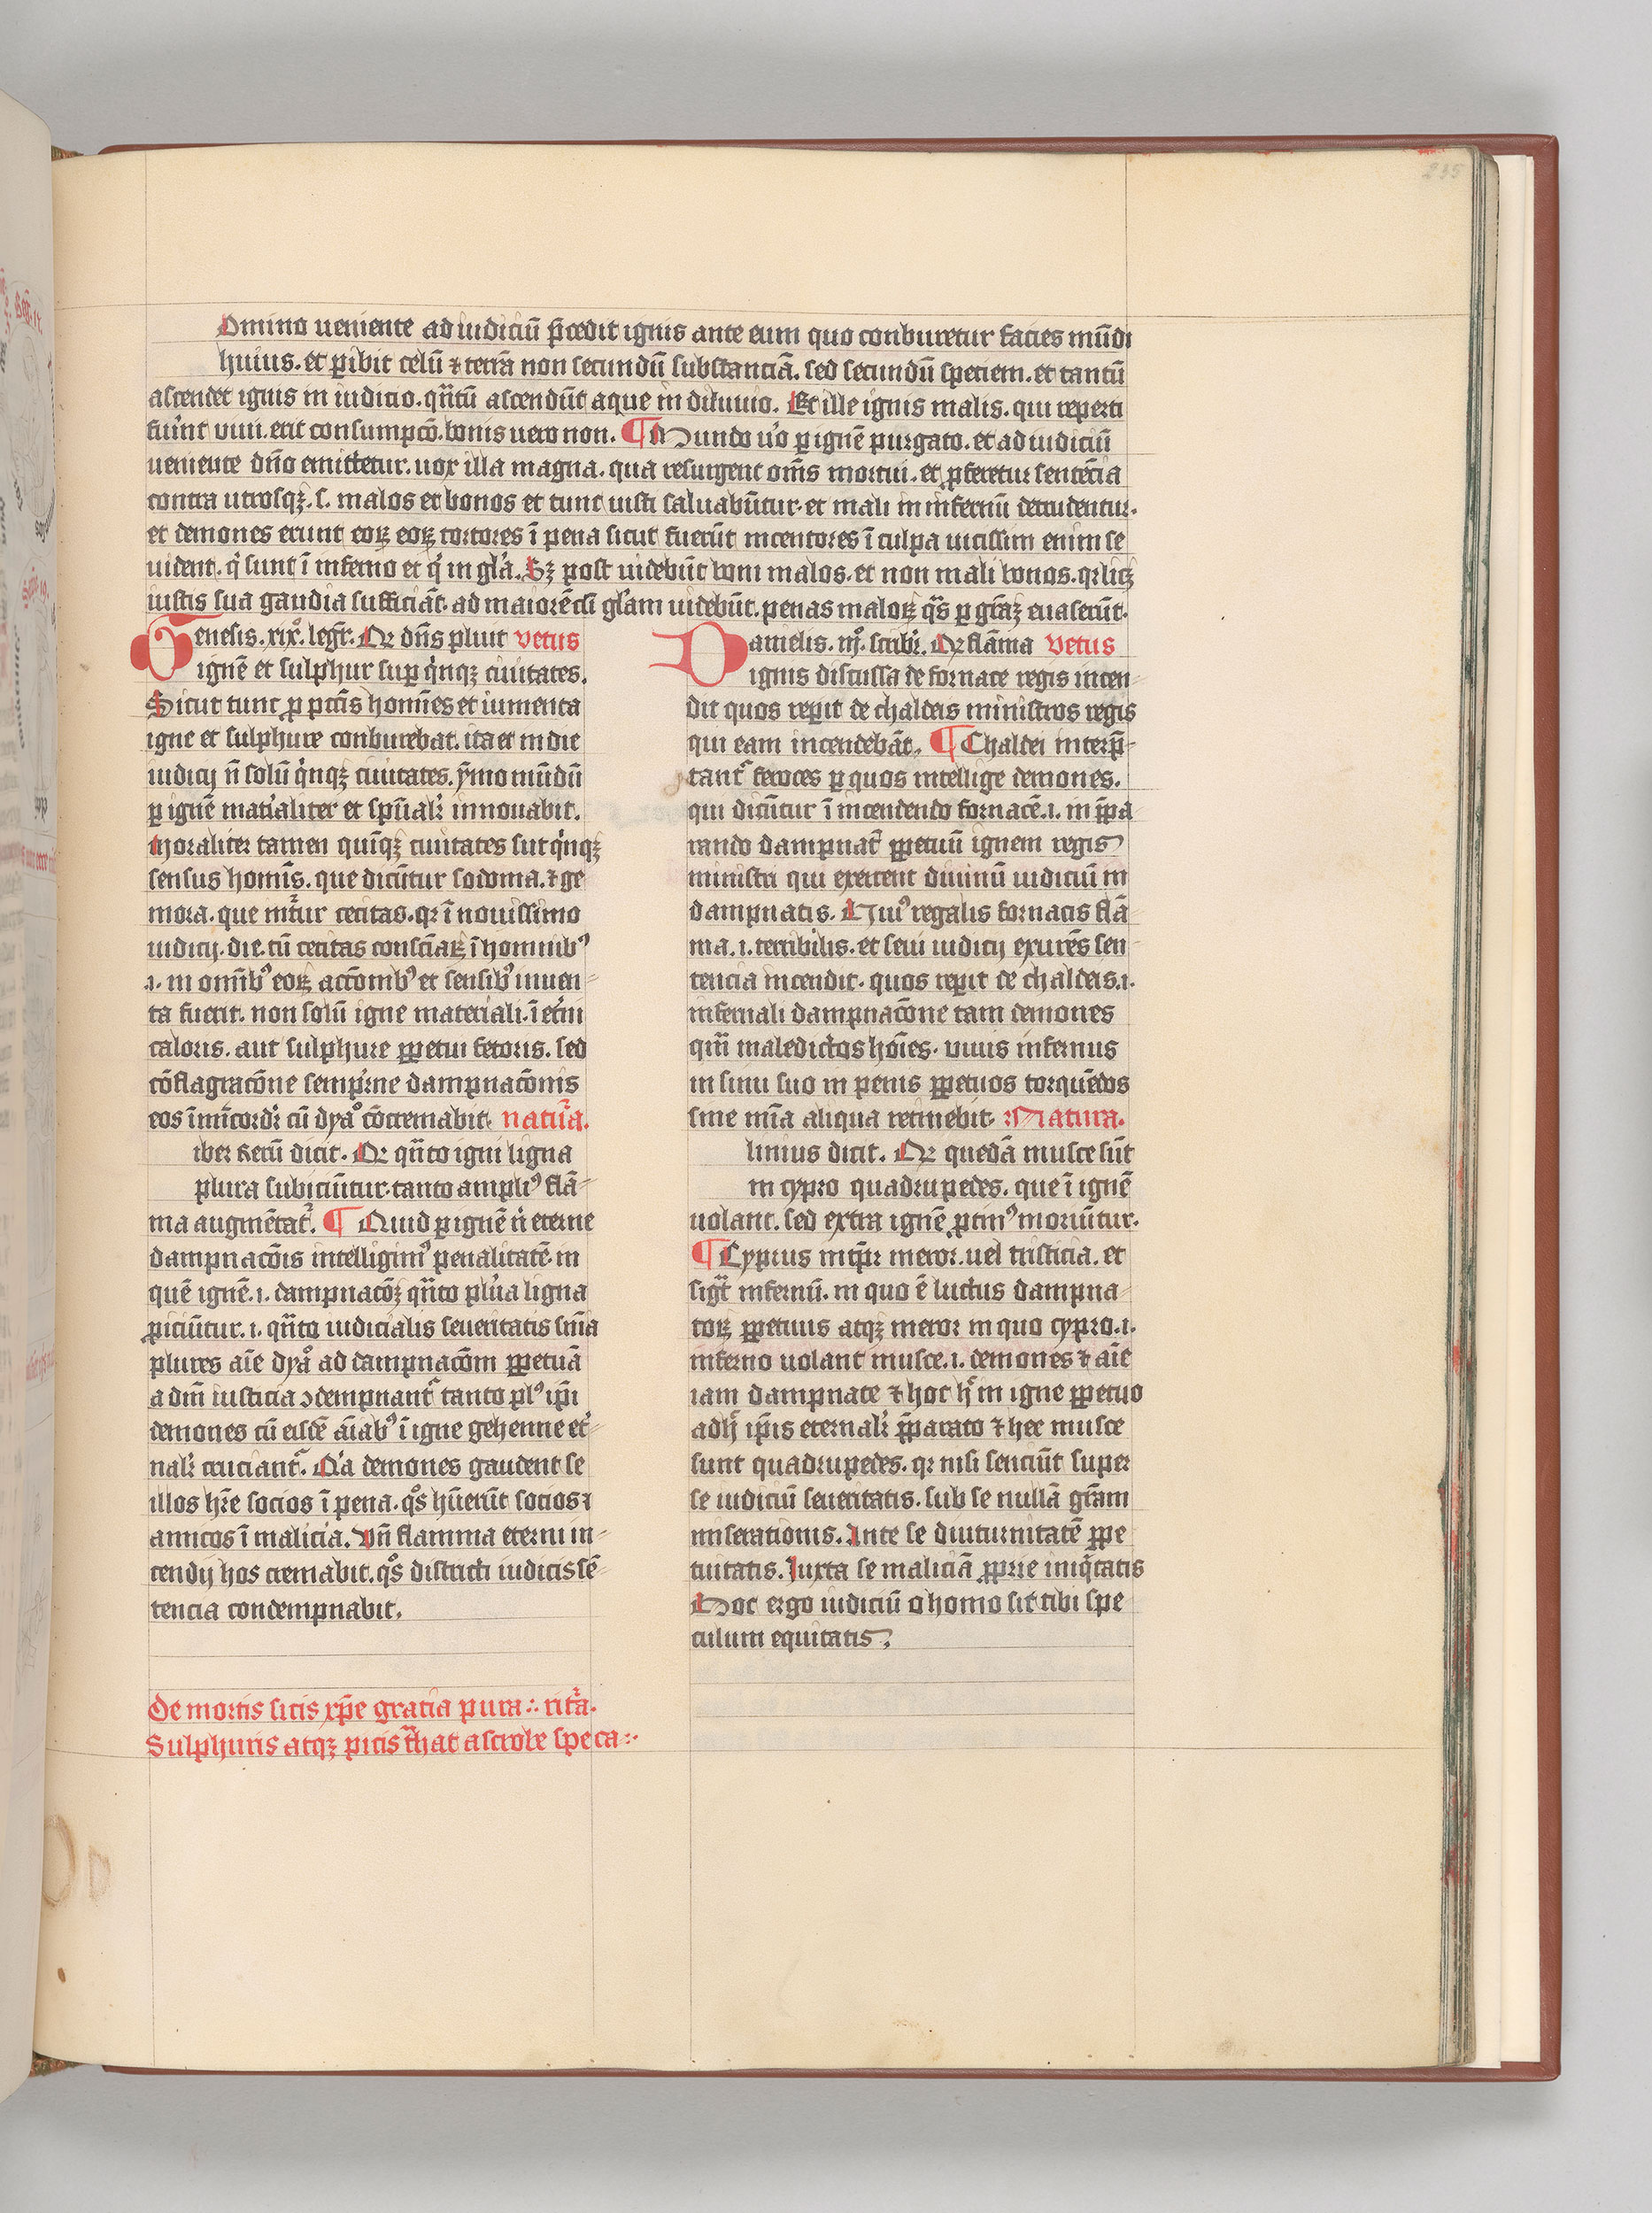 235
Omino ueniente ad iudiciũ p̃cedit ignis ante eum quo conburetur facies mũdi
huius. et ꝑibit celũ ⁊ terrã non secundũ substanciã. sed secundũ speciem. et tantũ
ascendet ignis in iudicio. qñtũ ascendũt aque in diluuio. Et ille ignis malis. qui reperti
fuĩnt viui. erit consumpcõ. bonis uero non. ¶ Mundo u'o ꝑ ignẽ purgato. et ad iudiciũ
ueniente dño emittetur. uox illa magna. qua resurgent om̃s mortui. et ꝓferetur sentẽcia
contra utrosqꝫ. s. malos et bonos et tunc iusti saluabũtur. et mali in infernũ detrudentur.
et demones erunt eoꝝ eoꝝ tortores ĩ pena sicut fuerũt incentores ĩ culpa uicissim enim se
uident. q̇ sunt ĩ inferno et q̇ in gl'a. Sꝫ post uidebũt boni malos. et non mali bonos. qꝛ licꝫ
iustis sua gaudia sufficiãt. ad maiorẽ cũ gl'am uidebũt. penas maloꝝ q̃s ꝑ gr̃aꝫ euaserũt.
Genesis. xix°. legr̃. Qꝛ dñs pluit vetus
ignẽ et sulphur suꝑ q̇nqꝫ ciuitates.
Sicut tunc ꝓ pctĩs homĩes et iumenta
igne et sulphure conburebat. ita et in die
iudicij ñ solũ q̇nqꝫ ciuitates. ẏmo mũdũ
ꝑ ignẽ mat'ialiter et spũalr̃ innouabit.
Moraliter tamen quĩqꝫ ciuitates sũt q̇nqꝫ
sensus homĩs. que dicũtur sodoma. ⁊ ge
mora. que int̃tur cecitas. qꝛ ĩ nouissimo
iudicij. die. cũ cecitas consciẽaꝝ ĩ hominibꝰ
.i. in om̃ibꝰ eoꝝ actõnibꝰ et sensibꝰ inuen-
ta fuerit. non solũ igne materiali. ĩ et'ni
caloris. aut sulphure ꝑpetui fetoris. sed
cõflagracõne semp'ne dampnacõnis
eos ĩmĩcordr̃ cũ dya° cõcremabit. natur̃a.
iber Rerũ dicit. Qꝛ qñto igni ligna
plura subiciũtur. tanto ampliꝰ flã-
ma augmẽtat̃. ¶ Quid ꝑ ignẽ ñ eterne
dampnacõis intelligimꝰ penalitatẽ. in
quẽ ignẽ. i. dampnacõꝫ qñto plur̃a ligna
ꝓiciũtur. i. qñto iudicialis seueritatis sñia
plures aĩe dya° ad dampnacõm ꝑpetuã
a dĩn iusticia ↄdempnant̃ tanto plꝰ ip̃i
demones cũ eisdẽ aĩabꝰ ĩ igne gehenne et'-
nalr̃ cruciant̃. Q'a demones gaudent se
illos hr̃e socios ĩ pena. q°s hũerũt socios ⁊
amicos ĩ malicia. Vñ flamma eterni in-
cendij hos cremabit. q°s districti iudicis sẽ-
tencia condempnabit.
De mortis sitis xp̃e gracia pura ∴ ritr̃a.
Sulphuris atqꝫ picis t̃hat a scrobe speca ∴
Danielis. iij°. scribr̃. Qꝛ flãma vetus
ignis discussa de fornace regis incen-
dit quos reperit de chaldeis ministros regis
qui eam incendebãt. ¶ Chaldei interp̃-
tant̃ feroces ꝑ quos intellige demones.
qui dicũtur ĩ incendendo fornacẽ. i. in p̃pa-
rando dampnat̃ ꝑpetuũ ignem regis
ministri qui exercent diuinũ iudiciũ in
dampnatis. Huiꝰ regalis fornacis flã-
ma. i. terribilis. et seui iudicij exurẽs sen-
tencia incendit. quos reperit de chaldeis. i.
infernali dampnacõne tam demones
qm̃ maledictos hoĩes. viuis infernus
in sinu suo in penis ꝑpetuos torquẽdos
sine mĩa aliqua retinebit. Natura.
linius dicit. Qꝛ quedã musce sũt
in cypro quadrupedes. que ĩ ignẽ
uolant. sed extra ignẽ ꝓtinꝰ moriũtur.
¶ Cyprus int̃pr̃ meror. uel tristicia. et
sig̃t infernũ. in quo ẽ luctus dampna-
toꝝ ꝑpetuus atqꝫ meror in quo cypro. i.
inferno uolant musce. i. demones ⁊ aĩe
iam dampnate ⁊ hoc h̃ in igne ꝑpetuo
adh̃ ip̃is eternalr̃ p̃parato ⁊ hee musce
sunt quadrupedes. qꝛ nisi senciũt super
se iudiciũ seueritatis. sub se nullã gr̃am
miserationis. Ante se diuturnitatẽ ꝑpe
tuitatis. Iuxta se maliciã ꝓprie iniq̇tatis
Hoc ergo iudiciũ o homo sit tibi spe
culum equitatis.